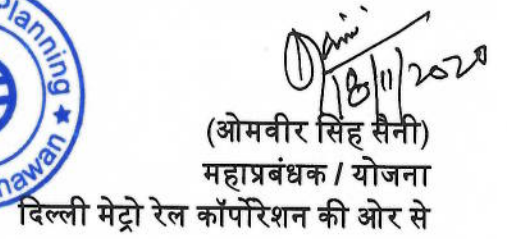 Planning
18/11/2020
(ओमवीर सिंह सैनी)
महाप्रबंधक / योजना
दिल्ली मेट्रो रेल कॉर्पोरेशन की ओर से